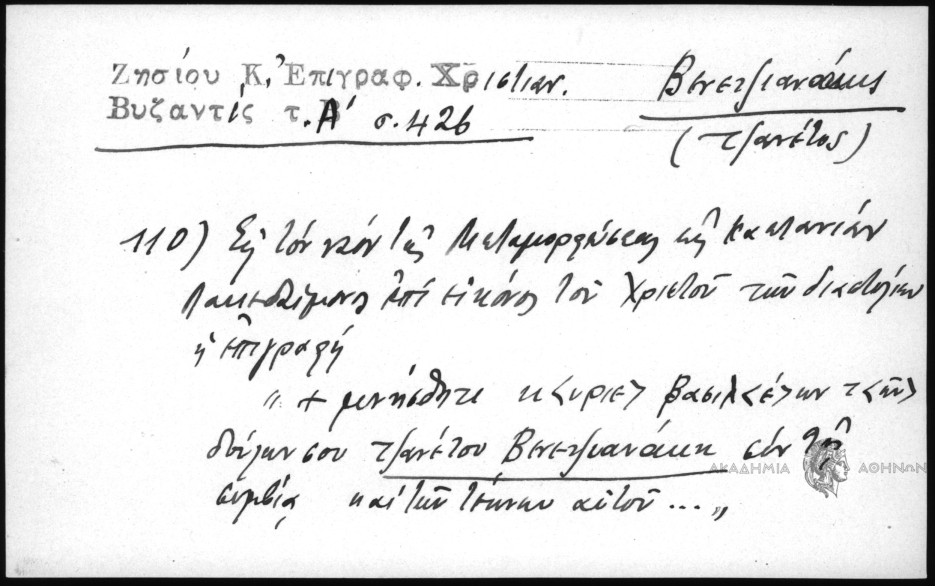 Ζησίου Κ, Ἐπιγραφ. Χριστιαν.
Βυζαντίς τ. Α' σ. 426
Βενετζιανάκης
(Τζανέτος)
110) Εἰς τόν ναόν τῆς Μεταμορφώσεως εἰς Καστανιάν
Λακεδαίμονος ἐπί εἰκόνος τοῦ Χριστοῦ τῶν
ἡ ἐπιγραφή
"+ μνήσθητι κ<υριε> βασιλ<έ>ων τ<ῶν>
δούλων σου Τζανέτου Βενετζιανάκη σύν τῇ
συμβίᾳ καί τῶν τέκνων αὐτοῦ ..."
ΑΚΑΔΗΜΙΑ ΑΘΗΝΩΝ